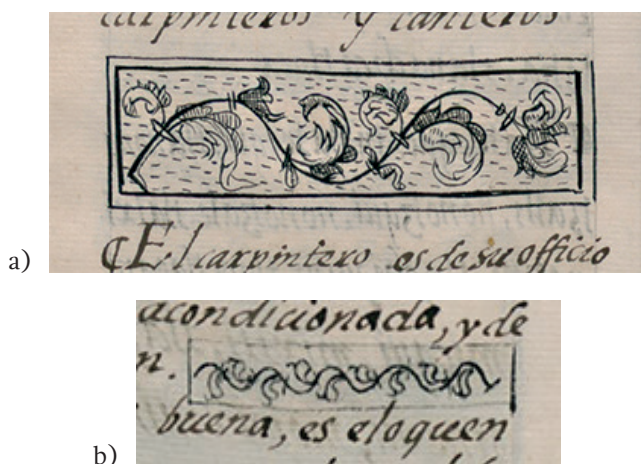 carpinteros y canteros
a)
¶ El carpintero es de su officio
acondicionada, y de
n.
buena, es eloquen
b)